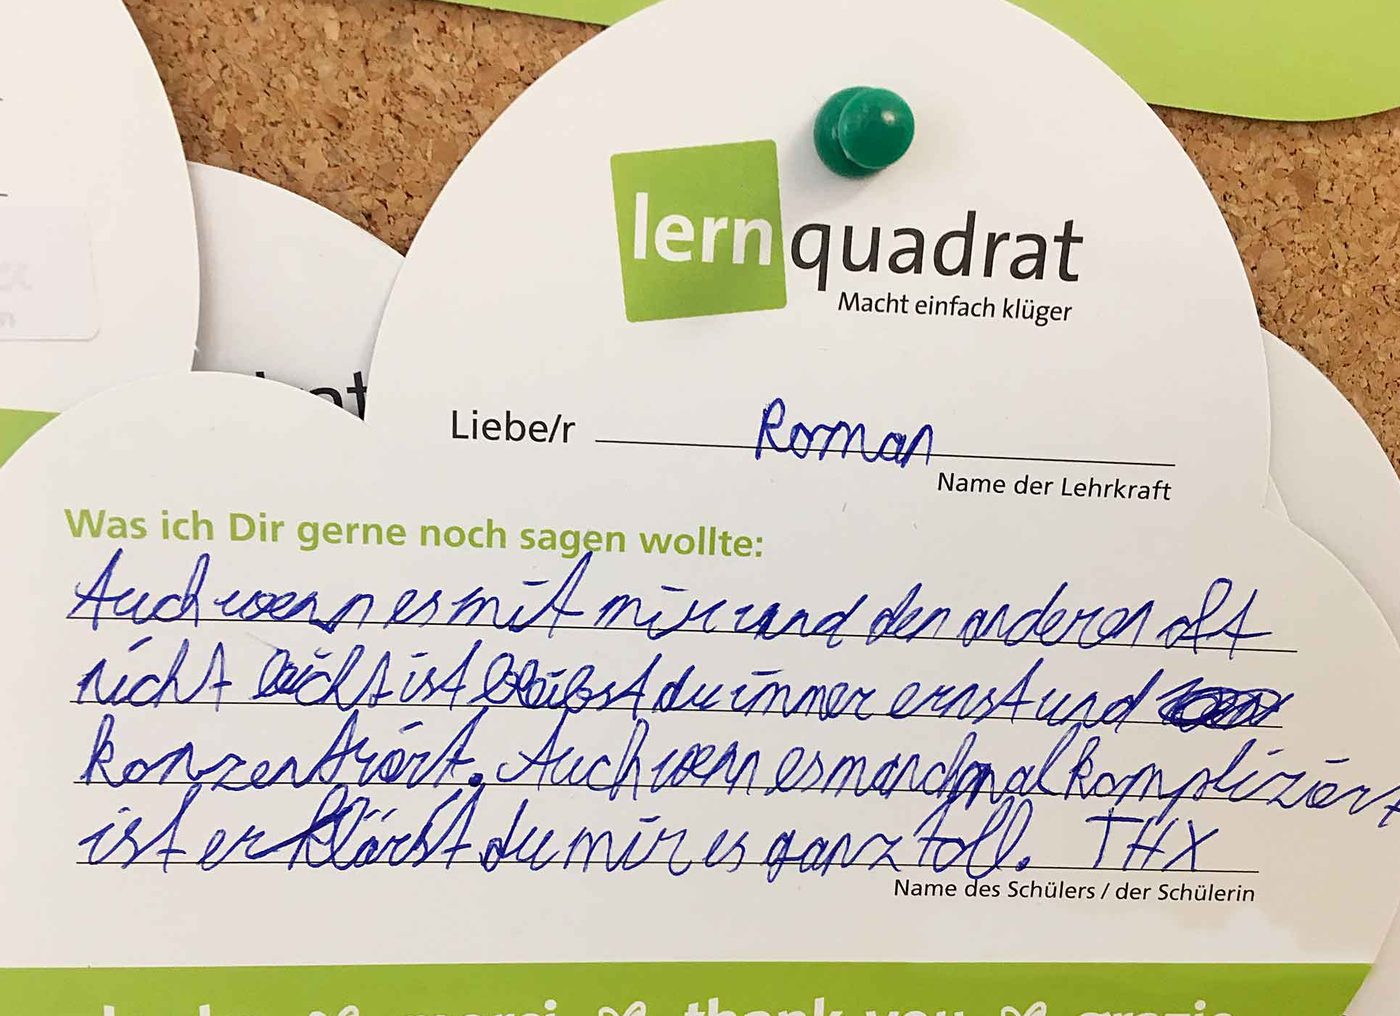 lernquadrat
Macht einfach klüger
at
Liebe/r Roman
Name der Lehrkraft
Was ich Dir gerne noch sagen wollte:
Auch wenn es mit mir und den anderen oft
nicht leicht ist bleibst du immer ernst und
konzentriert. Auch wenn es manchmal kompliziert
ist erklärst du mir es ganz toll. THX
Name des Schülers / der Schülerin
merci thank you grazie